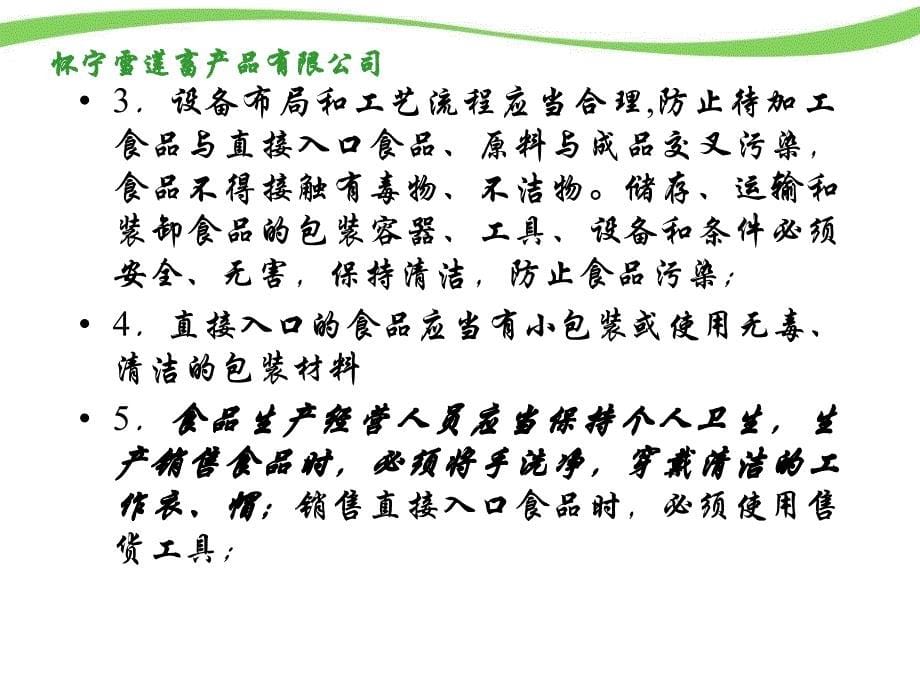 怀宁雪莲畜产品有限公司
• 3．设备布局和工艺流程应当合理,防止待加工
食品与直接入口食品、原料与成品交叉污染，
食品不得接触有毒物、不洁物。储存、运输和
装卸食品的包装容器、工具、设备和条件必须
安全、无害，保持清洁，防止食品污染；
• 4．直接入口的食品应当有小包装或使用无毒、
清洁的包装材料
• 5．食品生产经营人员应当保持个人卫生，生
产销售食品时，必须将手洗净，穿戴清洁的工
作衣、帽；销售直接入口食品时，必须使用售
货工具；